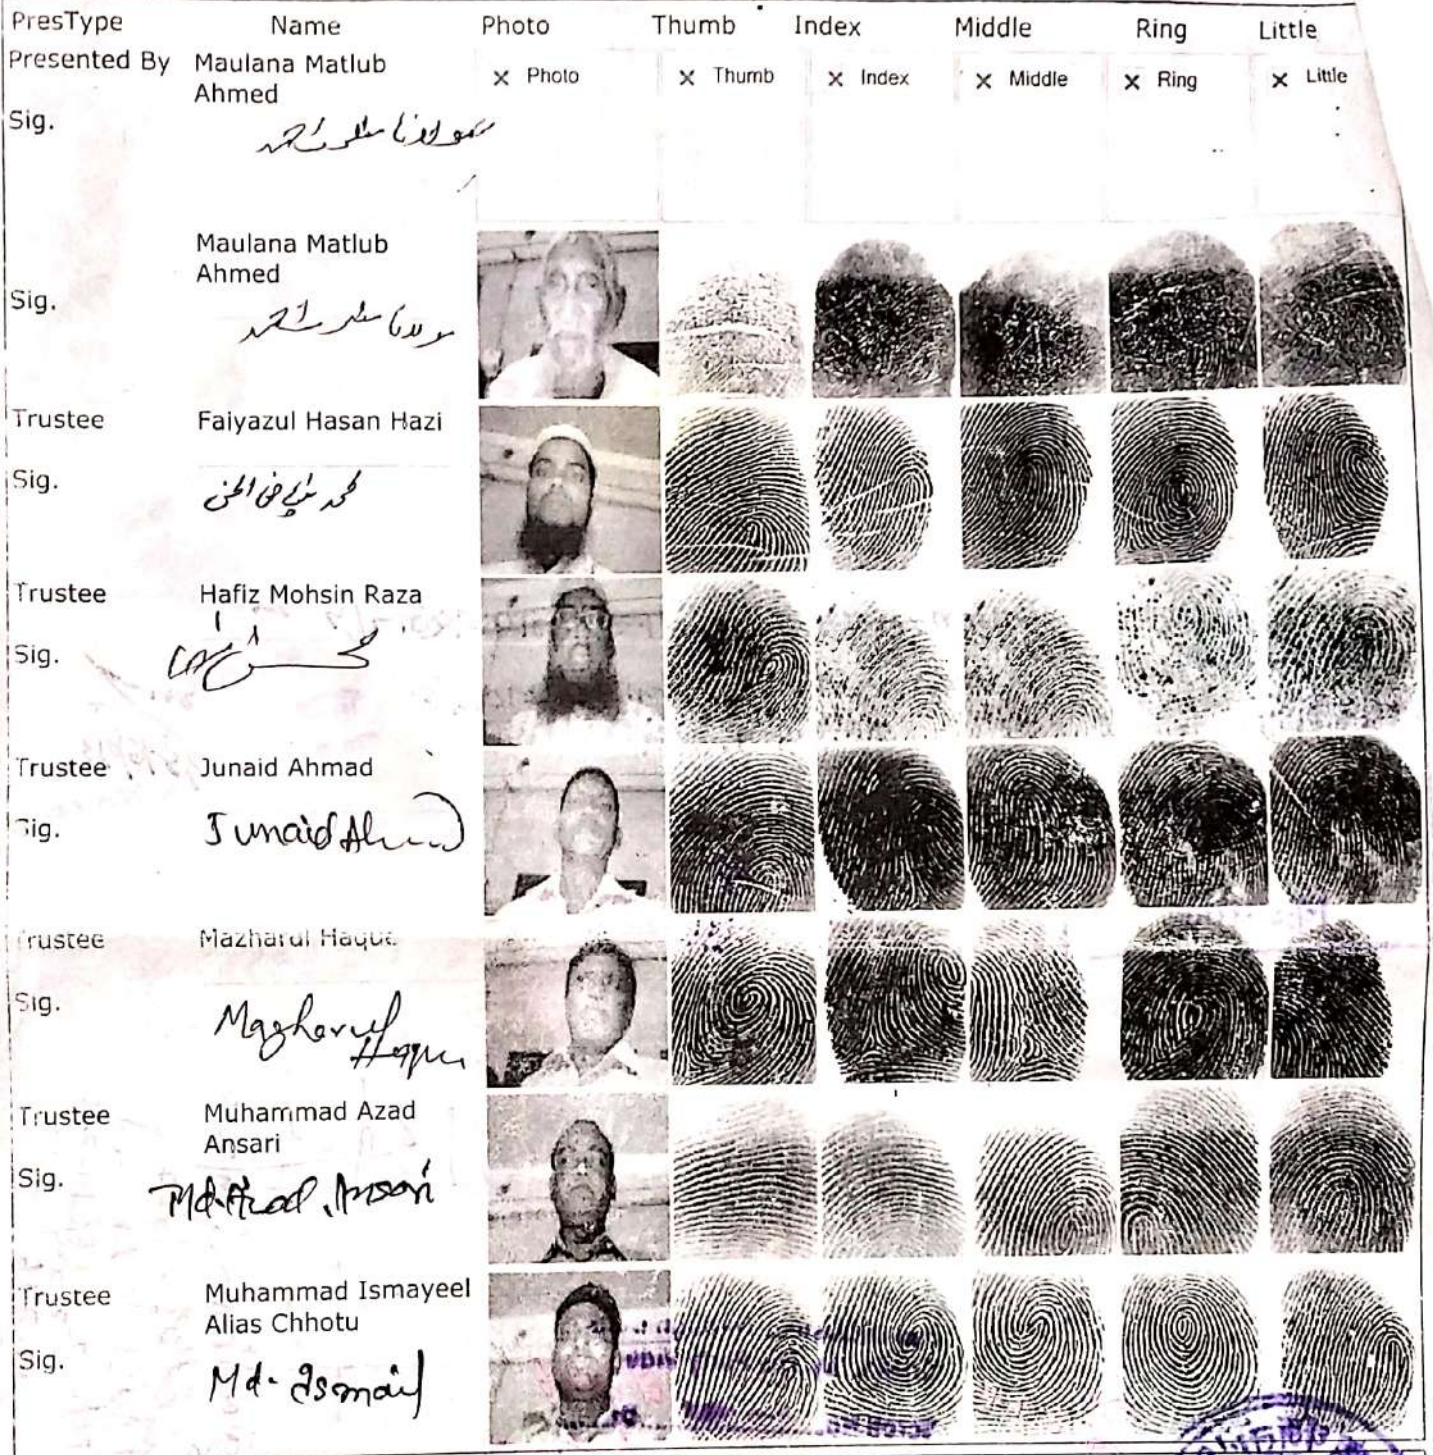 PresType Name Photo Thumb Index Middle Ring Little
Presented By Maulana Matlub Ahmed
× Photo × Thumb × Index × Middle × Ring × Little
Sig. مولانا مطلوب احمد
Maulana Matlub Ahmed
Sig. مولانا مطلوب احمد
Trustee Faiyazul Hasan Hazi
Sig. محمد فیاض الحسن
Trustee Hafiz Mohsin Raza
Sig. محسن رضا
Trustee Junaid Ahmad
Sig. Junaid Ahmad
Trustee Mazharul Haque
Sig. Mazharul Haque
Trustee Muhammad Azad Ansari
Sig. Md. Azad. Ansari
Trustee Muhammad Ismayeel Alias Chhotu
Sig. Md. Ismail